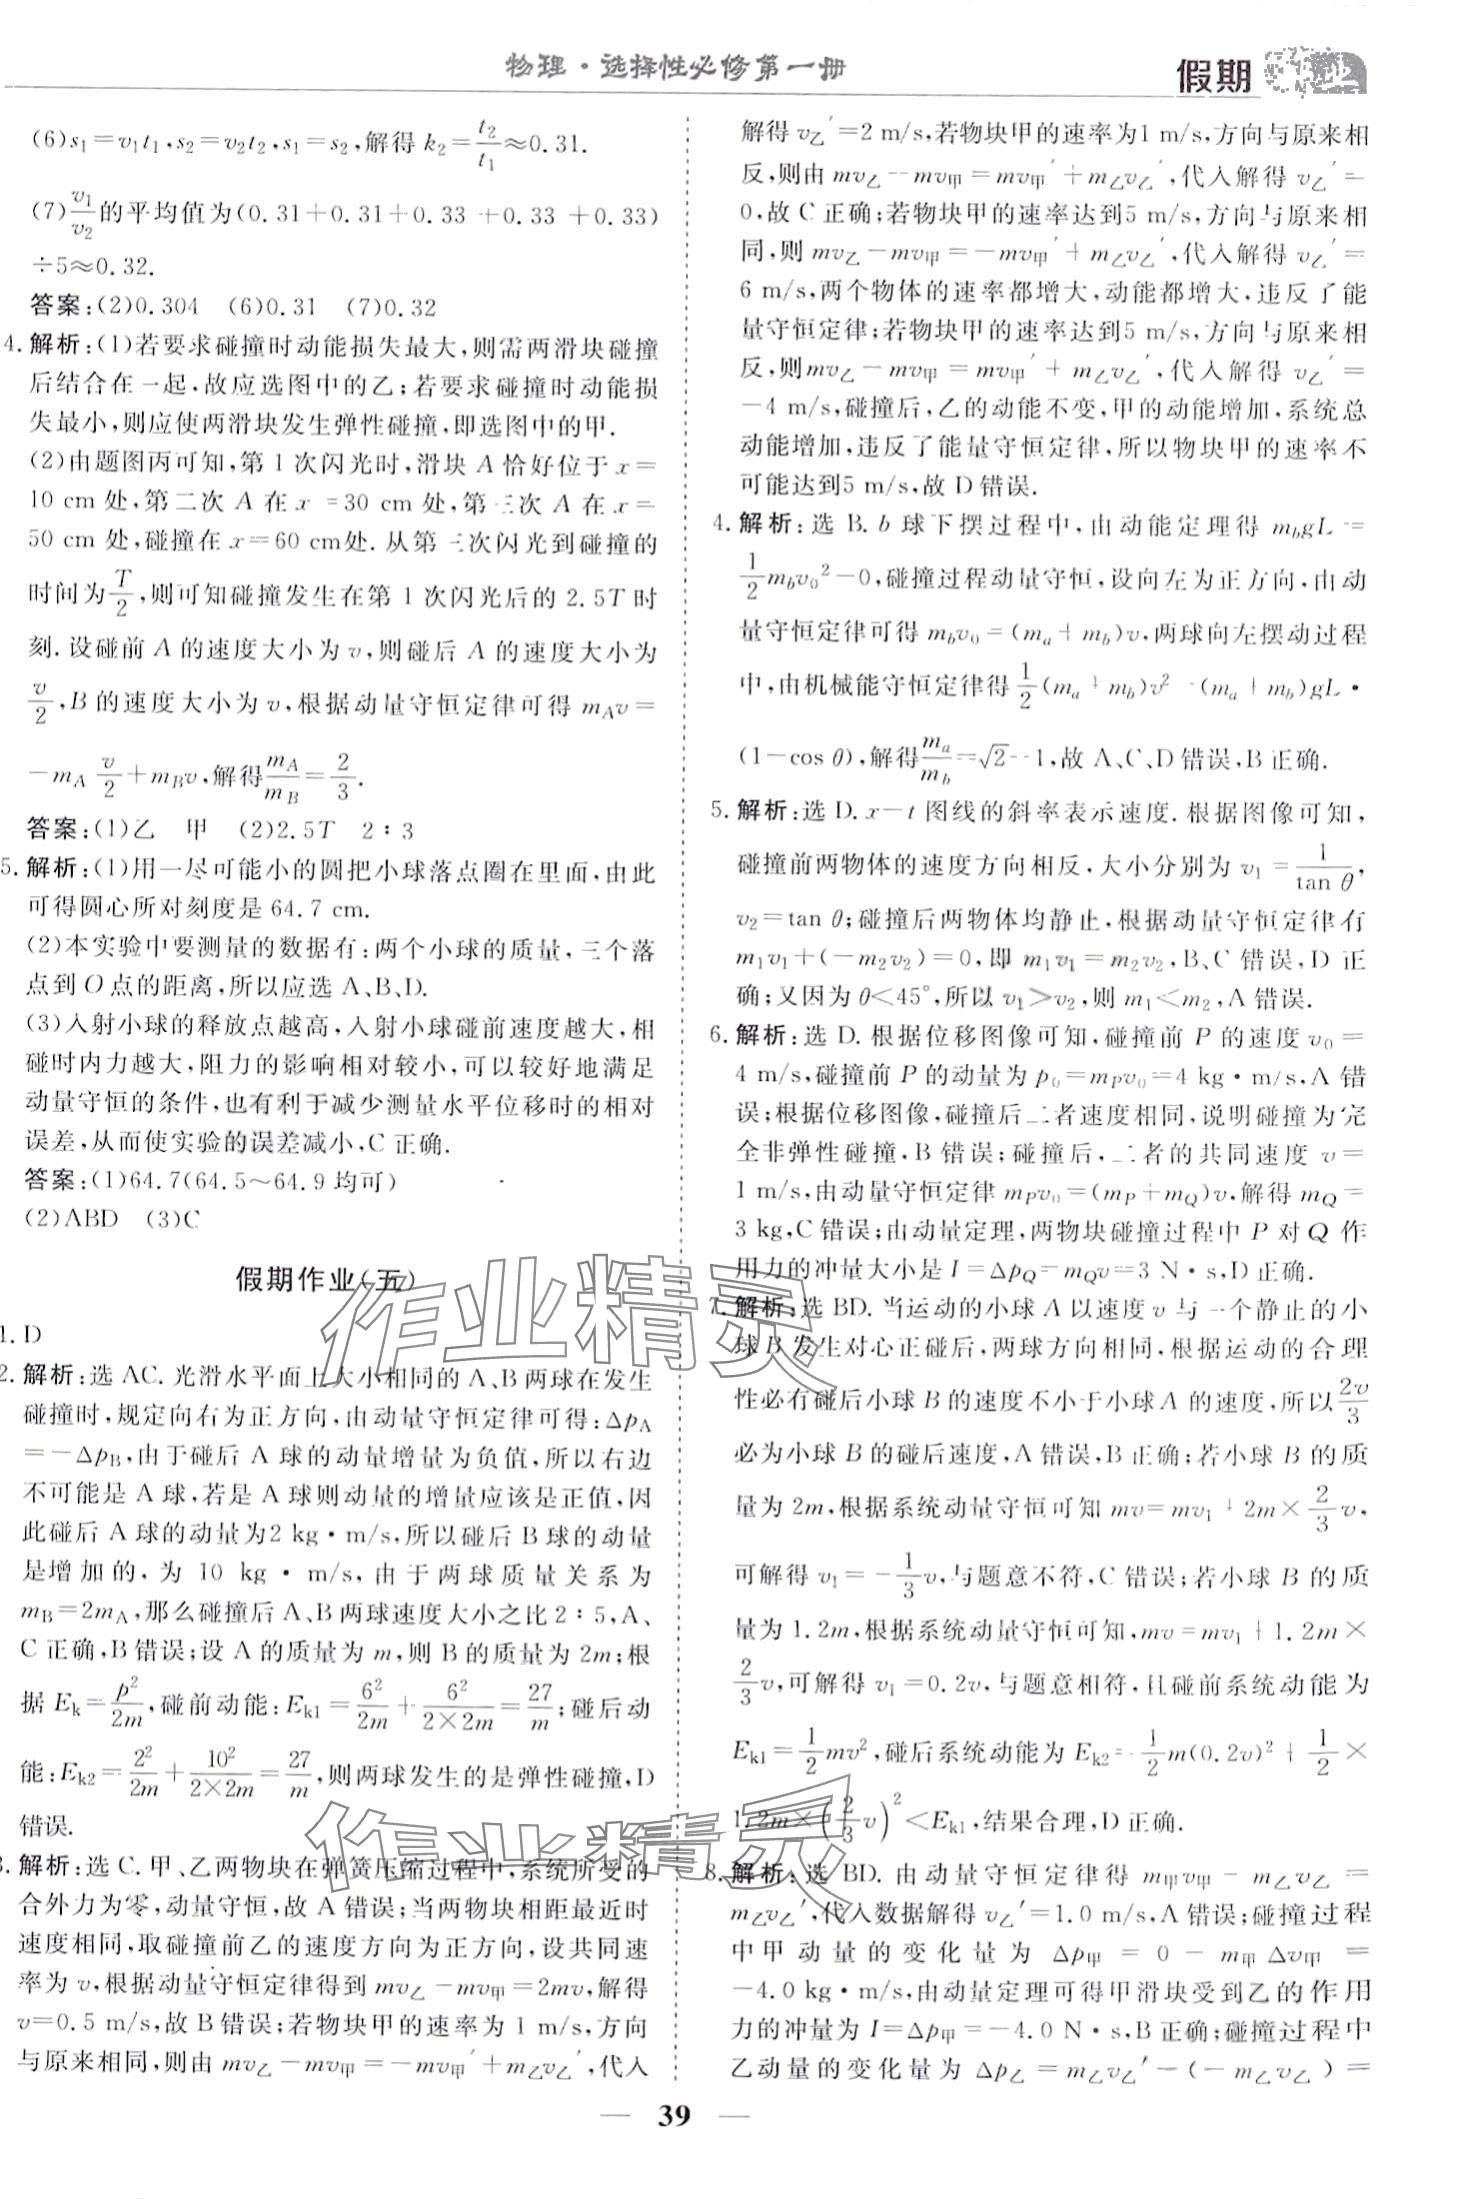 物理·选择性必修第一册
假期作业
(6)s₁=v₁t₁,s₂=v₂t₂,s₁=s₂,解得 k₂=t₂/t₁≈0.31.
(7)v₁/v₂的平均值为(0.31+0.31+0.33+0.33+0.33)
÷5≈0.32.
答案:(2)0.304 (6)0.31 (7)0.32
4.解析:(1)若要求碰撞时动能损失最大,则需两滑块碰撞
后结合在一起,故应选图中的乙;若要求碰撞时动能损
失最小,则应使两滑块发生弹性碰撞,即选图中的甲.
(2)由题图丙可知,第 1 次闪光时,滑块 A 恰好位于 x=
10 cm 处,第二次 A 在 x=30 cm 处,第三次 A 在 x=
50 cm 处,碰撞在 x=60 cm处.从第三次闪光到碰撞的
时间为T/2,则可知碰撞发生在第 1 次闪光后的 2.5T 时
刻.设碰前 A 的速度大小为 v,则碰后 A 的速度大小为
v/2,B 的速度大小为 v,根据动量守恒定律可得 m_Av=
-m_A v/2+m_Bv,解得m_A/m_B=2/3.
答案:(1)乙 甲 (2)2.5T 2∶3
5.解析:(1)用一尽可能小的圆把小球落点圈在里面,由此
可得圆心所对刻度是 64.7 cm.
(2)本实验中要测量的数据有:两个小球的质量,三个落
点到 O 点的距离,所以应选 A、B、D.
(3)入射小球的释放点越高,入射小球碰前速度越大,相
碰时内力越大,阻力的影响相对较小,可以较好地满足
动量守恒的条件,也有利于减少测量水平位移时的相对
误差,从而使实验的误差减小,C 正确.
答案:(1)64.7(64.5～64.9 均可)
(2)ABD (3)C
假期作业(五)
1.D
2.解析:选 AC.光滑水平面上大小相同的 A、B 两球在发生
碰撞时,规定向右为正方向,由动量守恒定律可得:Δp_A
=-Δp_B,由于碰后 A 球的动量增量为负值,所以右边
不可能是 A 球,若是 A 球则动量的增量应该是正值,因
此碰后 A 球的动量为2 kg·m/s,所以碰后 B 球的动量
是增加的,为 10 kg·m/s,由于两球质量关系为
m_B=2m_A,那么碰撞后 A、B 两球速度大小之比 2∶5,A、
C 正确,B 错误;设 A 的质量为 m,则 B 的质量为 2m;根
据 E_k=p²/2m,碰前动能:E_k1=6²/2m+6²/(2×2m)=27/m;碰后动
能:E_k2=2²/2m+10²/(2×2m)=27/m,则两球发生的是弹性碰撞,D
错误.
3.解析:选 C.甲、乙两物块在弹簧压缩过程中,系统所受的
合外力为零,动量守恒,故 A 错误;当两物块相距最近时
速度相同,取碰撞前乙的速度方向为正方向,设共同速
率为 v,根据动量守恒定律得到 mv乙-mv甲=2mv,解得
v=0.5 m/s,故 B错误;若物块甲的速率为 1 m/s,方向
与原来相同,则由 mv乙-mv甲=-mv甲′+m乙v乙′,代入
解得 v乙′=2 m/s,若物块甲的速率为1 m/s,方向与原来相
反,则由 mv乙-mv甲=mv甲′+m乙v乙′,代入解得 v乙′=
0,故 C 正确;若物块甲的速率达到5 m/s,方向与原来相
同,则 mv乙-mv甲=-mv甲′+m乙v乙′,代入解得 v乙′=
6 m/s,两个物体的速率都增大,动能都增大,违反了能
量守恒定律;若物块甲的速率达到5 m/s,方向与原来相
反,则mv乙-mv甲=mv甲′+m乙v乙′,代入解得 v乙′=
-4 m/s,碰撞后,乙的动能不变,甲的动能增加,系统总
动能增加,违反了能量守恒定律,所以物块甲的速率不
可能达到5 m/s,故 D 错误.
4.解析:选 B.b 球下摆过程中,由动能定理得 m_bgL=
1/2m_bv₀²-0,碰撞过程动量守恒,设向左为正方向,由动
量守恒定律可得 m_bv₀=(m_a+m_b)v,两球向左摆动过程
中,由机械能守恒定律得1/2(m_a+m_b)v²=(m_a+m_b)gL·
(1-cos θ),解得m_a/m_b=√2-1,故 A、C、D 错误,B 正确.
5.解析:选 D.x-t 图线的斜率表示速度.根据图像可知,
碰撞前两物体的速度方向相反,大小分别为 v₁=1/tan θ,
v₂=tan θ;碰撞后两物体均静止,根据动量守恒定律有
m₁v₁+(-m₂v₂)=0,即 m₁v₁=m₂v₂,B、C 错误,D 正
确;又因为 θ<45°,所以 v₁>v₂,则 m₁<m₂,A 错误.
6.解析:选 D.根据位移图像可知,碰撞前 P 的速度 v₀=
4 m/s,碰撞前 P 的动量为 p₀=m_Pv₀=4 kg·m/s,A 错
误;根据位移图像,碰撞后二者速度相同,说明碰撞为完
全非弹性碰撞,B 错误;碰撞后,二者的共同速度 v=
1 m/s,由动量守恒定律 m_Pv₀=(m_P+m_Q)v,解得 m_Q=
3 kg,C 错误;由动量定理,两物块碰撞过程中 P 对 Q 作
用力的冲量大小是 I=Δp_Q=m_Qv=3 N·s,D 正确.
7.解析:选 BD.当运动的小球 A 以速度 v 与一个静止的小
球 B 发生对心正碰后,两球方向相同,根据运动的合理
性必有碰后小球 B 的速度不小于小球 A 的速度,所以2v/3
必为小球 B 的碰后速度,A 错误,B 正确;若小球 B 的质
量为 2m,根据系统动量守恒可知 mv=mv₁+2m×2/3v,
可解得 v₁=-1/3v,与题意不符,C 错误;若小球 B 的质
量为 1.2m,根据系统动量守恒可知,mv=mv₁+1.2m×
2/3v,可解得 v₁=0.2v,与题意相符,且碰前系统动能为
E_k1=1/2mv²,碰后系统动能为 E_k2=1/2m(0.2v)²+1/2×
1.2m×(2/3v)²<E_k1,结果合理,D 正确.
8.解析:选 BD.由动量守恒定律得 m甲v甲-m乙v乙=
m乙v乙′,代入数据解得 v乙′=1.0 m/s,A 错误;碰撞过程
中甲动量的变化量为 Δp甲=0-m甲Δv甲=
-4.0 kg·m/s,由动量定理可得甲滑块受到乙的作用
力的冲量为 I=Δp甲=-4.0 N·s,B 正确;碰撞过程中
乙动量的变化量为 Δp乙=m乙v乙′-(-m乙v乙)=
— 39 —
作业精灵
作业精灵